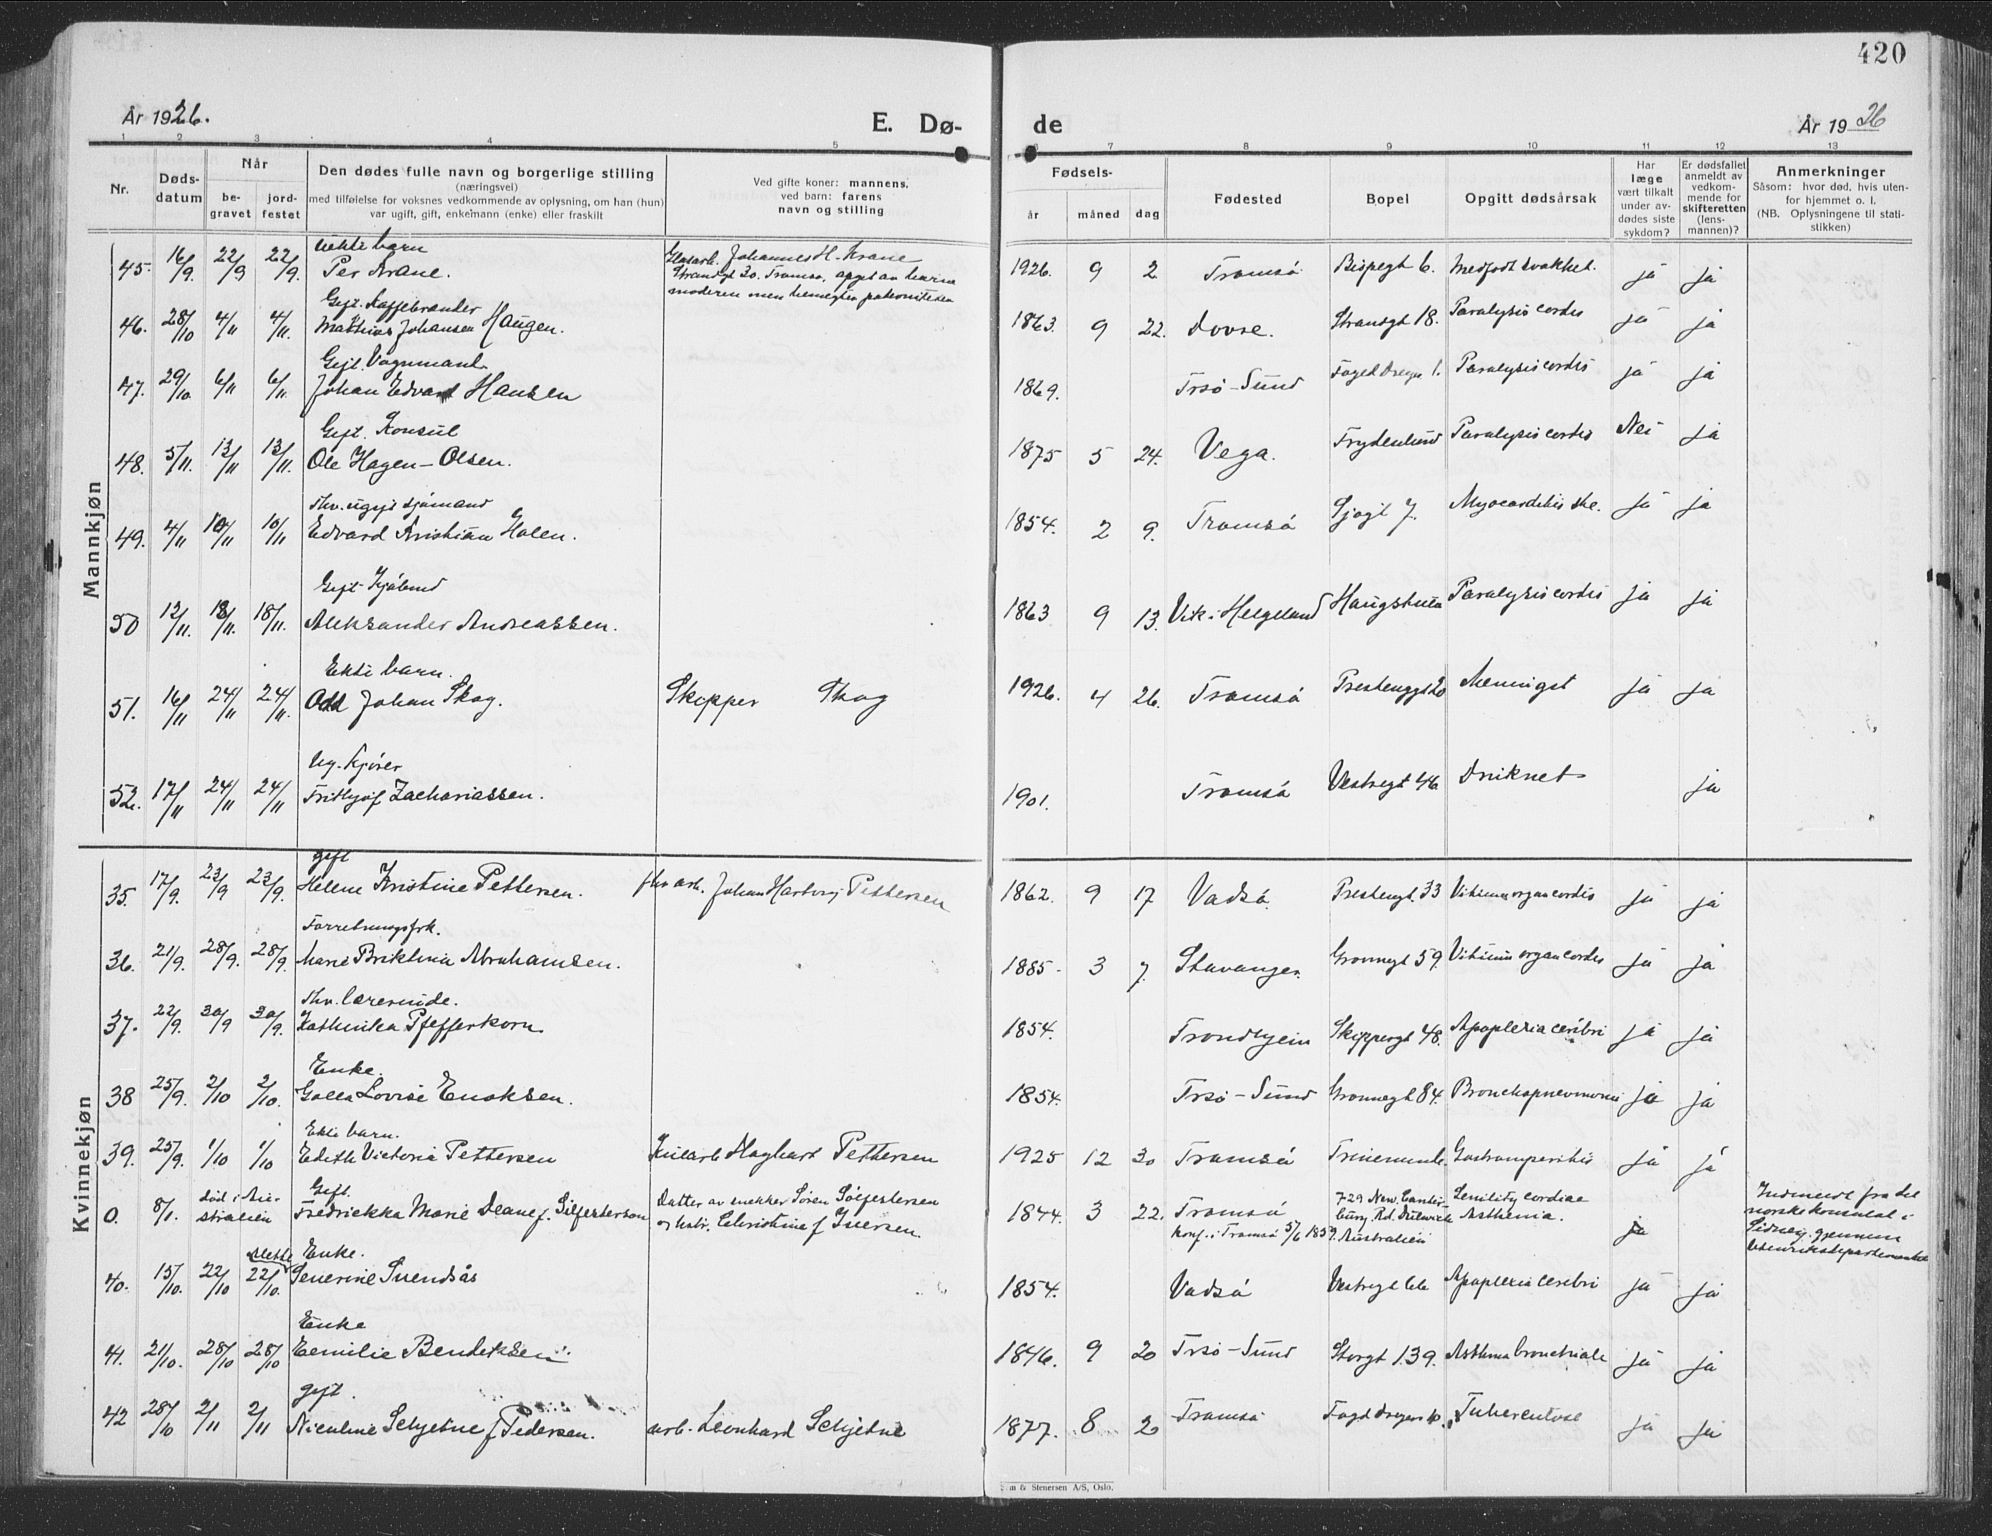 420
År 1926.
E. Dø-
de
År 1926
1 2 3 4 5 6 7 8 9 10 11 12 13
Nr.
Døds-
datum
Når
be-
gravet
jord-
festet
Den dødes fulle navn og borgerlige stilling
(næringsvei)
med tilføielse for voksnes vedkommende av oplysning, om han (hun)
var ugift, gift, enkemann (enke) eller fraskilt
Ved gifte koner: mannens,
ved barn: farens
navn og stilling
Fødsels-
år måned dag
Fødested
Bopel
Opgitt dødsårsak
Har
læge
vært tilkalt
under av-
dødes siste
sykdom?
Er dødsfallet
anmeldt av
vedkom-
mende for
skifteretten
(lens-
mannen)?
Anmerkninger
Såsom: hvor død, hvis uten-
for hjemmet o. l.
(NB. Oplysningene til stati-
stikken)
Mannkjøn
Uekte barn
45. 16/9. 22/9 22/9. Per Krane. Johannes H. Krane 1926. 9 2. Tromsø Bispegt 6. Medfødt svakhet. ja ja
Strandgt 30. Tromsø, opgit av barne
moderen men benegter paterniteten
Gift. Kaffebrænder
46. 28/10 4/11 4/11. Mathias Johansen Haugen. 1863. 9 22. Dovre. Strandgt 18. Paralysis cordis ja ja
Gift. Vognmand
47. 29/10 6/11 6/11. Johan Edvard Hansen 1869. Trsø-Sund Paralysis cordis ja ja
Gift. Konsul
48. 5/11. 13/11 13/11. Ole Hagen-Olsen. 1875 5 24. Vega. Frydenlund Paralysis cordis Nei ja
fhv. ugift sjømand
49. 4/11 10/11 10/11 Edvard Kristian Holen. 1854. 2 9. Tromsø Sjøgt 7. ja ja
Gift
50 12/11. 18/11. 18/11. Aleksander Andreassen. 1863 9 13. Vik i Helgeland Paralysis cordis ja ja
Ekte barn.
51. 16/11 24/11 24/11. Odd Johan Skog. Skipper Skog 1926. 4 26. Tromsø Meningit ja ja
Ug. kjører
52. 17/11 24/11 24/11 Frithjof Zachariassen. 1901. Tromsø Vestregt 46 Druknet ja
Kvinnekjøn
gift
35. 17/9. 23/9 23/9. Helene Kristine Pettersen. fhv. arb. Johan Hartvig Pettersen 1862. 9 17 Vadsø. Prestengt. 33 Vitium organ cordis ja ja
Forretningsfrk.
36. 21/9. 28/9. 28/9. Marie Abrahamsen. 1885. 3 7. Stavanger. Grønnegt 59. Vitium organ cordis ja ja
fhv. lærerinde.
37. 22/9. 30/9 30/9. Kathinka Pfefferkorn 1854. Trondhjem Skippergt 48. Apoplexia cerebri ja ja
Enke.
38 25/9. 2/10 2/10. Lovise Enoksen. 1854. Trsø-Sund Grønnegt 84. Bronchopneumoni ja ja
Ekte barn.
39. 25/9. 1/10 1/10 Edith Victoria Pettersen Kularb Haghart Pettersen 1925 12 30 Tromsø ja ja
Gift.
0. 8/1. død i Au- Fredrikka Marie Deane f. Silfestersen Datter av snekker Søren Silfestersen 1844. 3 22. Tromsø 729 New Canter- Senility cordiac
stralien og hustr. Christine f Iversen. konf. i Tromsø 5/6 1859. bury Rd. Dulwich Asthenia. ja
Australien
Indmeldt fra det
norske konsulat i
Sidney gjennem
Utenriksdepartementet
Enke.
40. 15/10. 22/10 22/10. Severine Svendsås 1854. Vadsø Vestregt 66 Apoplexia cerebri ja ja
Enke
41. 21/10. 28/10 28/10 Emilie Bendiksen 1846. 9 20 Trsø-Sund Storgt 139. Asthma bronchiale ja ja
gift.
42 28/10 2/11 2/11 Nicoline Schjetne f Pedersen. arb. Leonhard Schjetne 1877. 8 2 Tromsø Tuberculose ja ja
& Stenersen A/S, Oslo.